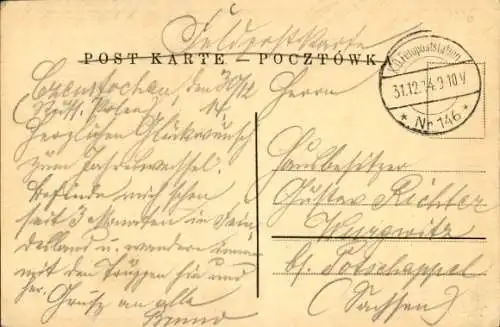 Feldpostkarte
POST KARTE – POCZTÓWKA
K.D. Feldpoststation
31.12.14. 9-10 V
* Nr. 146 *
Czenstochau, den 30/12
(Russ. Polen) 14.
Herzlichen Glückwunsch
zum Jahreswechsel.
Befinde mich schon
seit 3 Monaten in Fein
desland u. wandere immer
mit den Truppen hin und
her. Gruß an alle
Bruno
Herrn
Hausbesitzer
Gustav Richter
Wurgwitz
bs. Potschappel
(Sachsen)